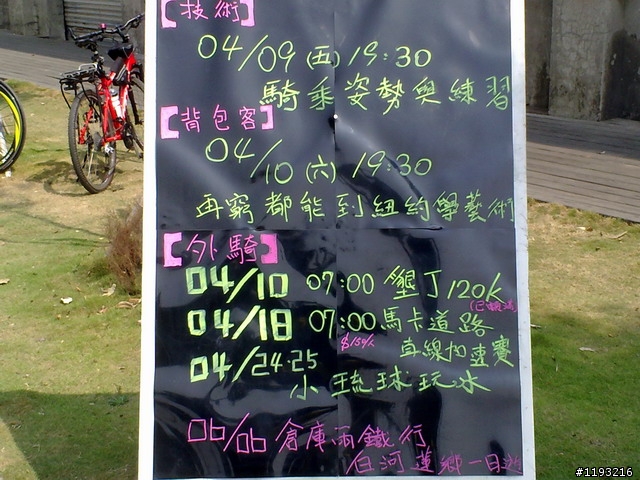 【技術】
04/09(五)19:30
騎乘姿勢與練習
【背包客】
04/10(六)19:30
再窮都能到紐約學藝術
【外騎】
04/10 07:00 墾丁120K
04/18 07:00 馬卡道路
$150/人 直線加速賽
04/24-25
小琉球玩水
06/06 倉庫兩鐵行
白河蓮鄉一日遊
#1193216